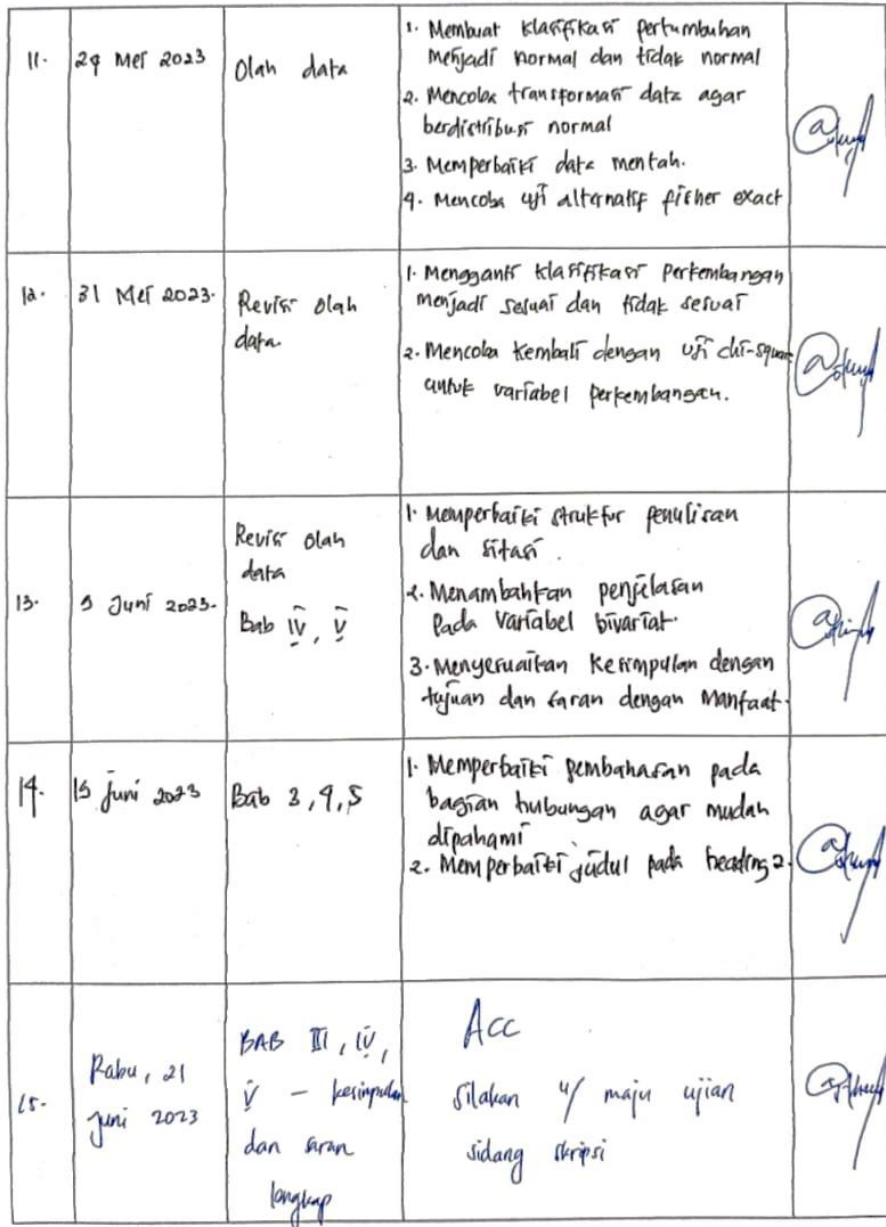 11.
29 Mei 2023
Olah data
1. Membuat klasifikasi pertumbuhan
menjadi normal dan tidak normal
2. Mencoba transformasi data agar
berdistribusi normal
3. Memperbaiki data mentah.
4. Mencoba uji alternatif fisher exact
12.
31 Mei 2023.
Revisi olah
data.
1. Mengganti klasifikasi perkembangan
menjadi sesuai dan tidak sesuai
2. Mencoba kembali dengan uji chi-square
untuk variabel perkembangan.
13.
5 Juni 2023.
Revisi olah
data
Bab IV, V
1. Memperbaiki struktur penulisan
dan sitasi.
2. Menambahkan penjelasan
pada variabel bivariat.
3. Menyesuaikan kesimpulan dengan
tujuan dan saran dengan manfaat.
14.
15 Juni 2023
Bab 3, 4, 5
1. Memperbaiki pembahasan pada
bagian hubungan agar mudah
dipahami
2. Memperbaiki judul pada heading 2.
15.
Rabu, 21
Juni 2023
BAB III, IV,
V – kesimpulan
dan saran
lengkap
Acc
silakan u/ maju ujian
sidang skripsi